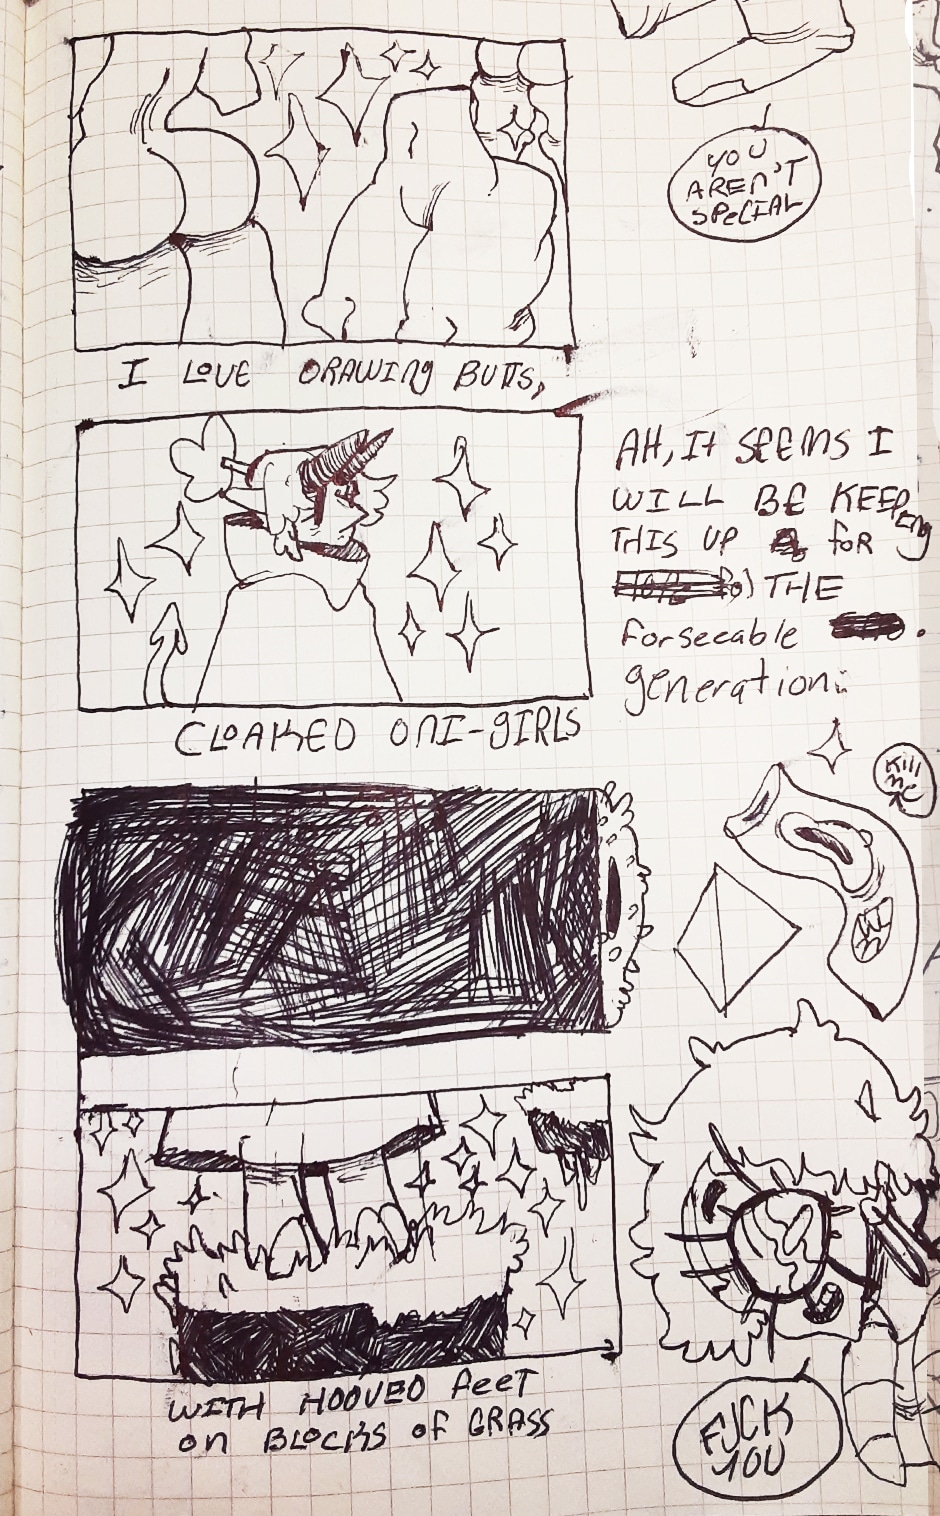 YOU
AREN'T
SPECIAL
I LOVE DRAWING BUTTS,
AH, IT SEEMS I
WILL BE KEEPENG
THIS UP FOR
THE
Forseeable .
generation:
CLOAKED ONI-GIRLS
Kill
me
WITH HOOVED FEET
ON BLOCKS OF GRASS
FUCK
YOU